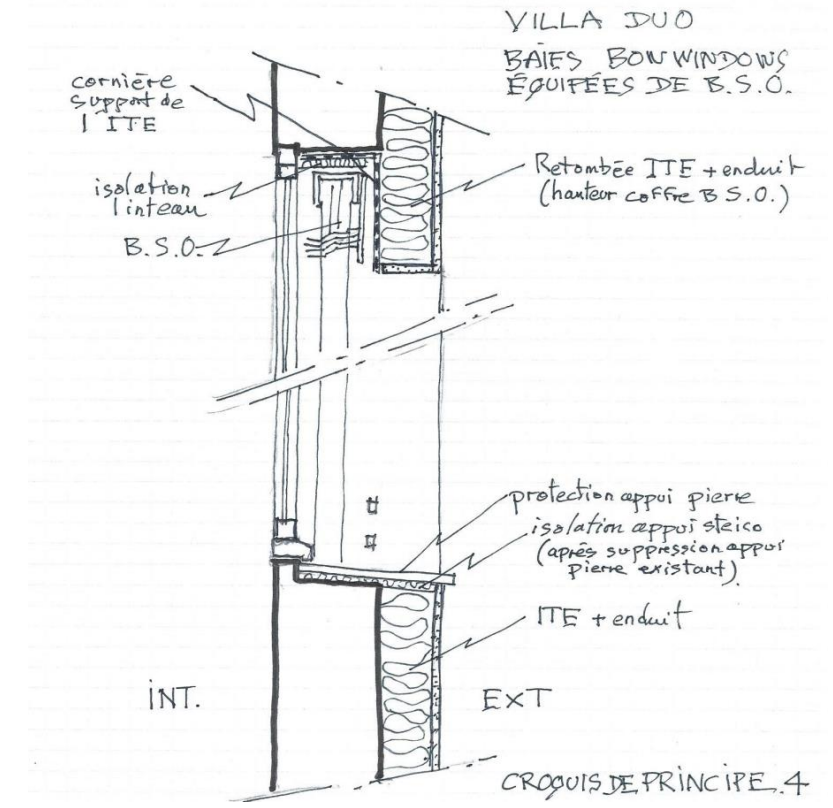 VILLA DUO
BAIES BOW WINDOWS
ÉQUIPÉES DE B.S.O.
cornière
support de
l ITE
isolation
linteau
B.S.O.
Retombée ITE + enduit
(hauteur coffre B S.O.)
protection appui pierre
isolation appui steico
(après suppression appui
pierre existant)
ITE + enduit
INT.
EXT
CROQUIS DE PRINCIPE.4